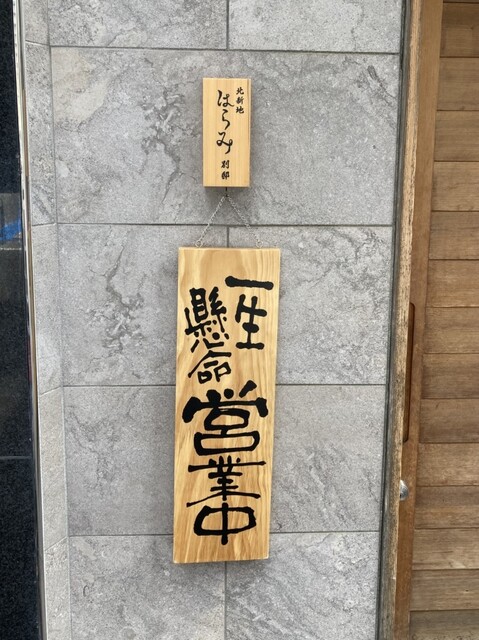 北新地
はらみ
別邸
一生
懸命
営業中